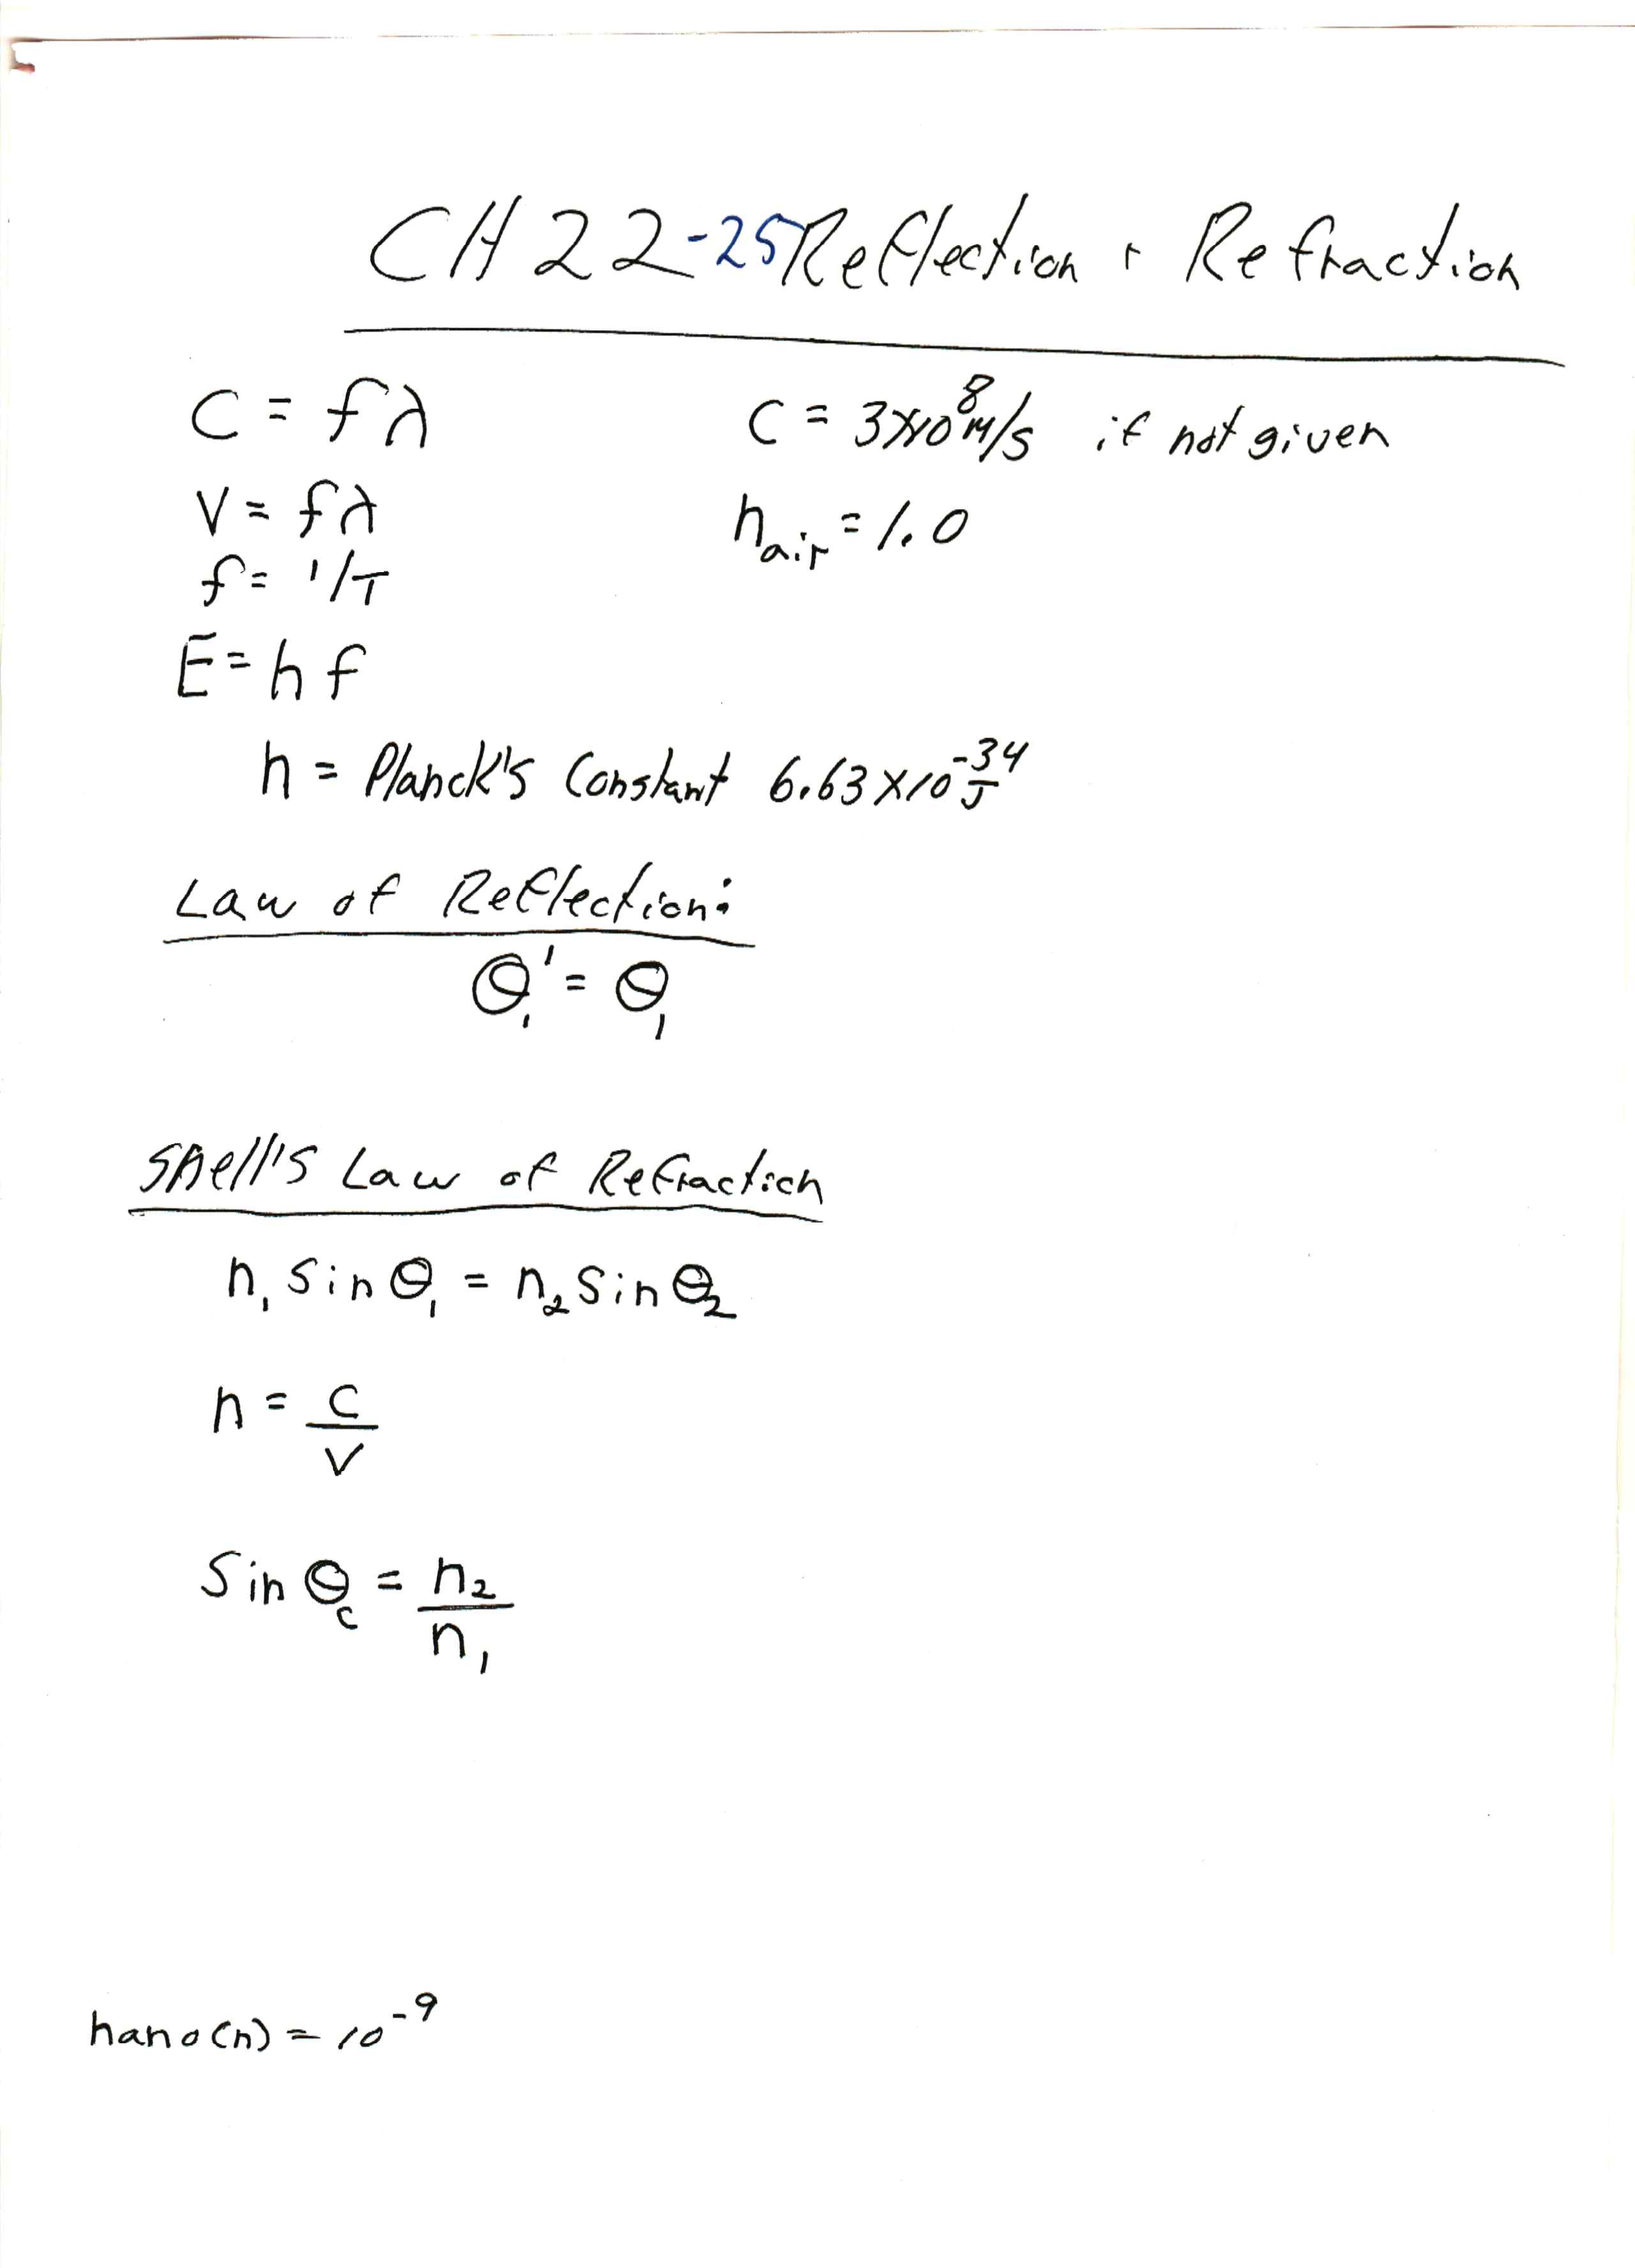 CH 22-25 Reflection + Refraction
C = fλ
C = 3x10⁸ m/s if not given
V = fλ
n air = 1.0
f = 1/T
E = hf
h = Planck's Constant 6.63 x 10⁻³⁴ J
Law of Reflection:
θ₁' = θ₁
Snell's Law of Refraction
n₁ sin θ₁ = n₂ sin θ₂
n = C/V
Sin θc = n₂/n₁
nano(n) = 10⁻⁹